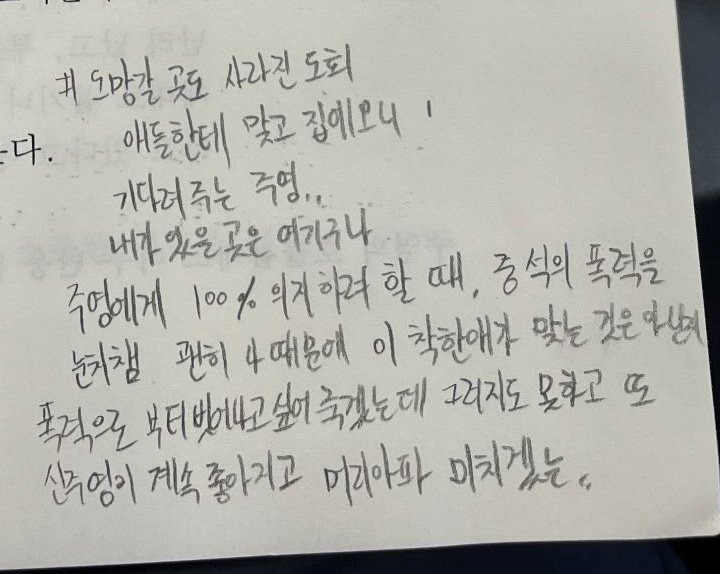 # 도망갈 곳도 사라진 도회
애들한테 맞고 집에오니
는다.
기다려주는 주영..
내가 있을 곳은 여기구나
주영에게 100% 의지하려 할 때, 중석의 폭력을
눈치챔 괜히 나 때문에 이 착한애가 맞는 것은 아닌지
폭력으로 부터 벗어나고 싶어 죽겠는데 그러지도 못하고 또
신주영이 계속 좋아지고 머리아파 미치겠는..